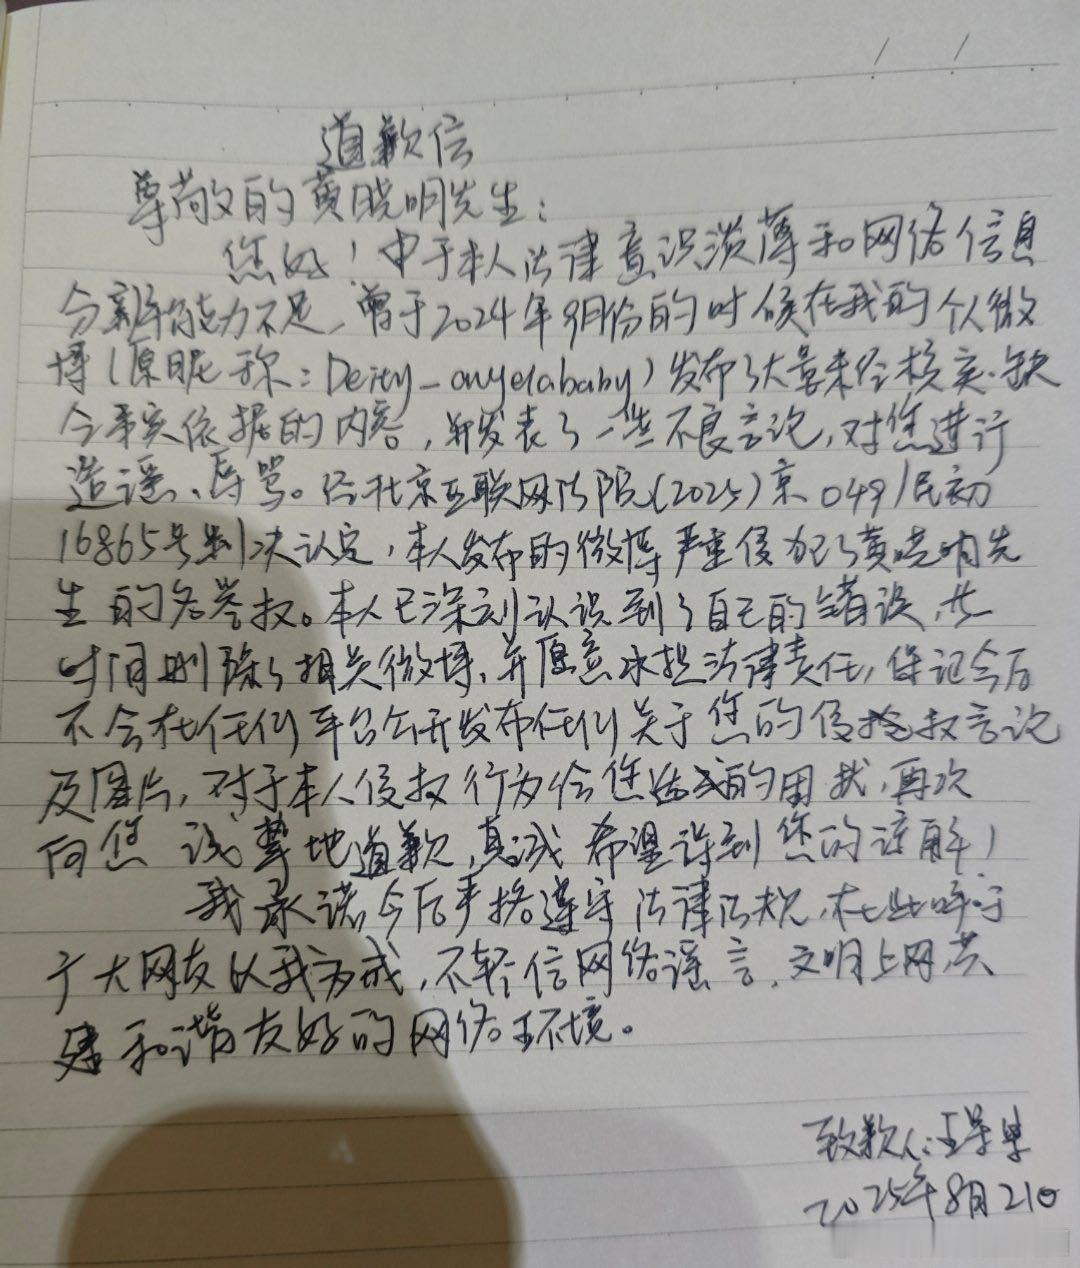 道歉信
尊敬的黄晓明先生：
您好！由于本人法律意识淡薄和网络信息
分辨能力不足，曾于2024年9月份的时候在我的个人微
博（原昵称：Deity_angelababy）发布了大量未经核实、缺
令事实依据的内容，并发表了一些不良言论，对您进行
造谣、辱骂。经北京互联网法院（2025）京0491民初
16865号判决认定，本人发布的微博严重侵犯了黄晓明先
生的名誉权。本人已深刻认识到了自己的错误，此
时间删除了相关微博，并愿意承担法律责任，保证今后
不会在任何平台公开发布任何关于您的侵权言论
及图片，对于本人侵权行为给您造成的困扰，再次
向您诚挚地道歉，真诚希望得到您的谅解！
我承诺今后严格遵守法律法规，在此呼吁
广大网友以我为戒，不轻信网络谣言，文明上网，共
建和谐友好的网络环境。
致歉人：王
2025年8月21日